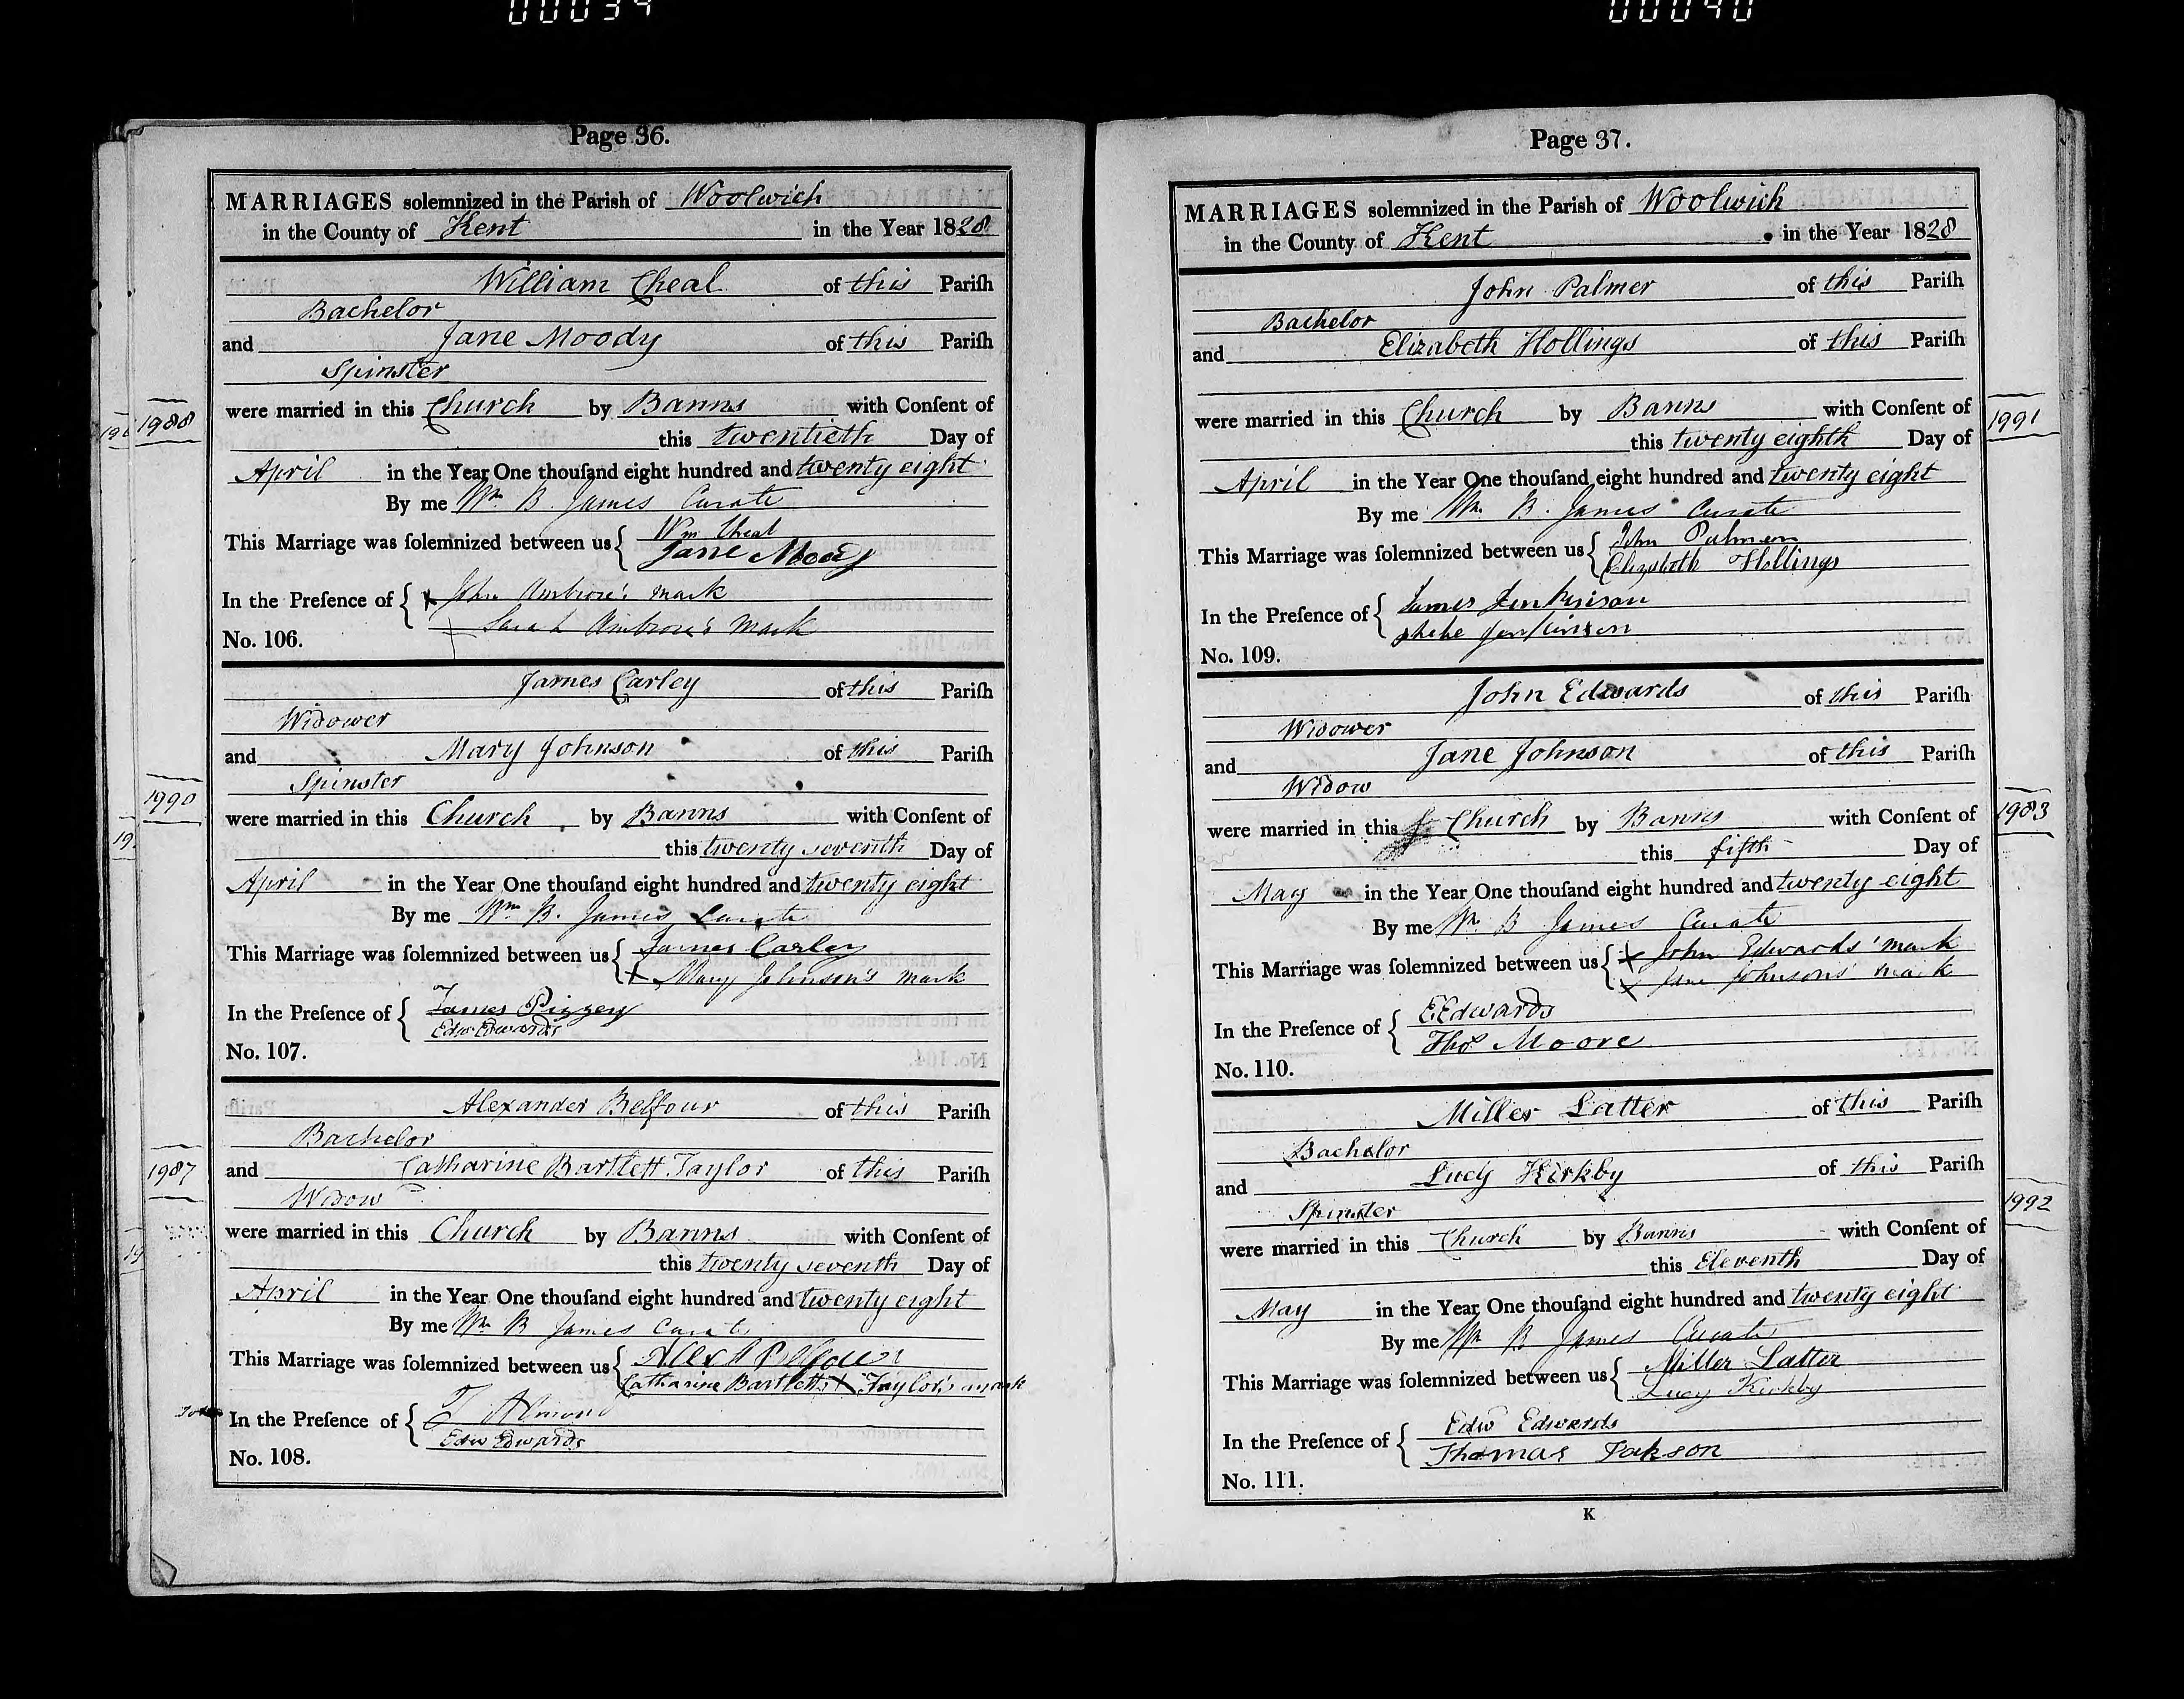 00039
00040
Page 36.
MARRIAGES solemnized in the Parish of Woolwich
in the County of Kent in the Year 1828
William Cheal of this Pariſh
Bachelor
and Jane Moody of this Pariſh
Spinster
were married in this Church by Banns with Conſent of
this twentieth Day of
April in the Year One thouſand eight hundred and twenty eight
By me Wm B. James Curate
This Marriage was ſolemnized between us { Wm Cheal
Jane Moody
In the Preſence of { X John Ambrose's mark
+ Sarah Ambrose's mark
No. 106.
1988
James Carley of this Pariſh
Widower
and Mary Johnson of this Pariſh
Spinster
were married in this Church by Banns with Conſent of
this twenty seventh Day of
April in the Year One thouſand eight hundred and twenty eight
By me Wm B. James Curate
This Marriage was ſolemnized between us { James Carley
X Mary Johnson's mark
In the Preſence of { James Piggey
Edw Edwards
No. 107.
1990
Alexander Belfour of this Pariſh
Bachelor
and Catharine Bartlett Taylor of this Pariſh
Widow
were married in this Church by Banns with Conſent of
this twenty seventh Day of
April in the Year One thouſand eight hundred and twenty eight
By me Wm B James Curate
This Marriage was ſolemnized between us { Alexr Belfour
Catharine Bartletts X Taylor's mark
In the Preſence of { Almond
Edw Edwards
No. 108.
1987
Page 37.
MARRIAGES solemnized in the Parish of Woolwich
in the County of Kent in the Year 1828
John Palmer of this Pariſh
Bachelor
and Elizabeth Hollings of this Pariſh
were married in this Church by Banns with Conſent of
this twenty eighth Day of
April in the Year One thouſand eight hundred and twenty eight
By me Wm B. James Curate
This Marriage was ſolemnized between us { John Palmer
Elizabeth Hollings
In the Preſence of { James Jenkinson
phebe Jenkinson
No. 109.
1991
John Edwards of this Pariſh
Widower
and Jane Johnson of this Pariſh
Widow
were married in this Church by Banns with Conſent of
this fifth Day of
May in the Year One thouſand eight hundred and twenty eight
By me Wm B James Curate
This Marriage was ſolemnized between us { X John Edwards' mark
X Jane Johnsons' mark
In the Preſence of { E Edwards
Thos Moore
No. 110.
1983
Miller Latter of this Pariſh
Bachelor
and Lucy Kirkby of this Pariſh
Spinster
were married in this Church by Banns with Conſent of
this Eleventh Day of
May in the Year One thouſand eight hundred and twenty eight
By me Wm B James Curate
This Marriage was ſolemnized between us { Miller Latter
Lucy Kirkby
In the Preſence of { Edw Edwards
Thomas
No. 111.
1992
K